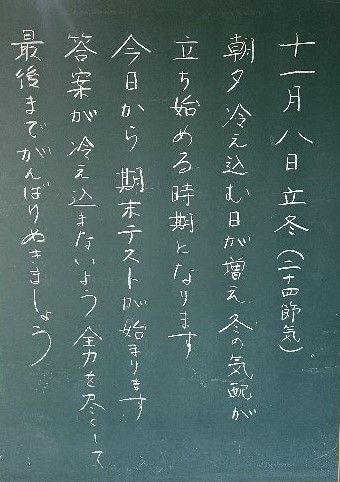 十一月八日立冬(二十四節気)
朝夕冷え込む日が増え、冬の気配が
立ち始める時期となります
今日から期末テストが始まります
答案が冷え込まないよう全力を尽くして
最後までがんばりぬきましょう